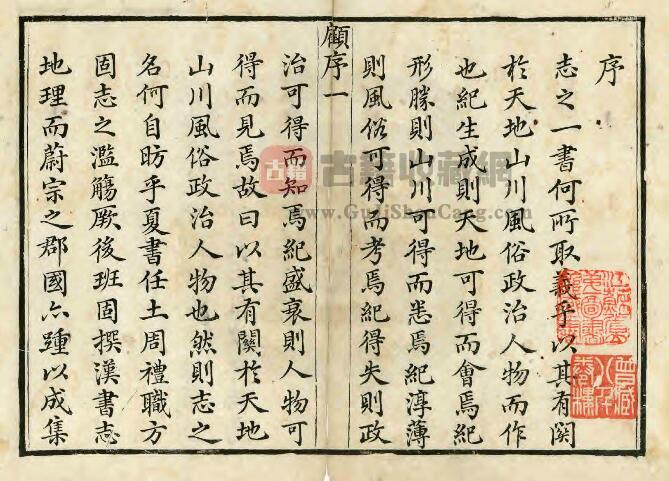 序
志之一書何所取義乎以其有関
於天地山川風俗政治人物而作
也紀生成則天地可得而會焉紀
形勝則山川可得而悉焉紀淳薄
則風俗可得而考焉紀得失則政
顧序一
治可得而知焉紀盛衰則人物可
得而見焉故曰以其有關於天地
山川風俗政治人物也然則志之
名何自昉乎夏書任土周禮職方
固志之濫觴厥後班固撰漢書志
地理而蔚宗之郡國亦踵以成集
古籍
古籍收藏網
www.GuJiShouCang.com